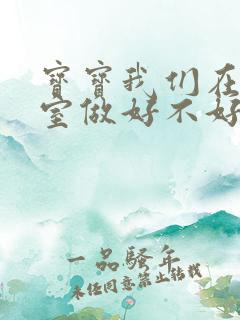 寶寶我们在
室做好不好
一品騷年
未经同意禁止转载